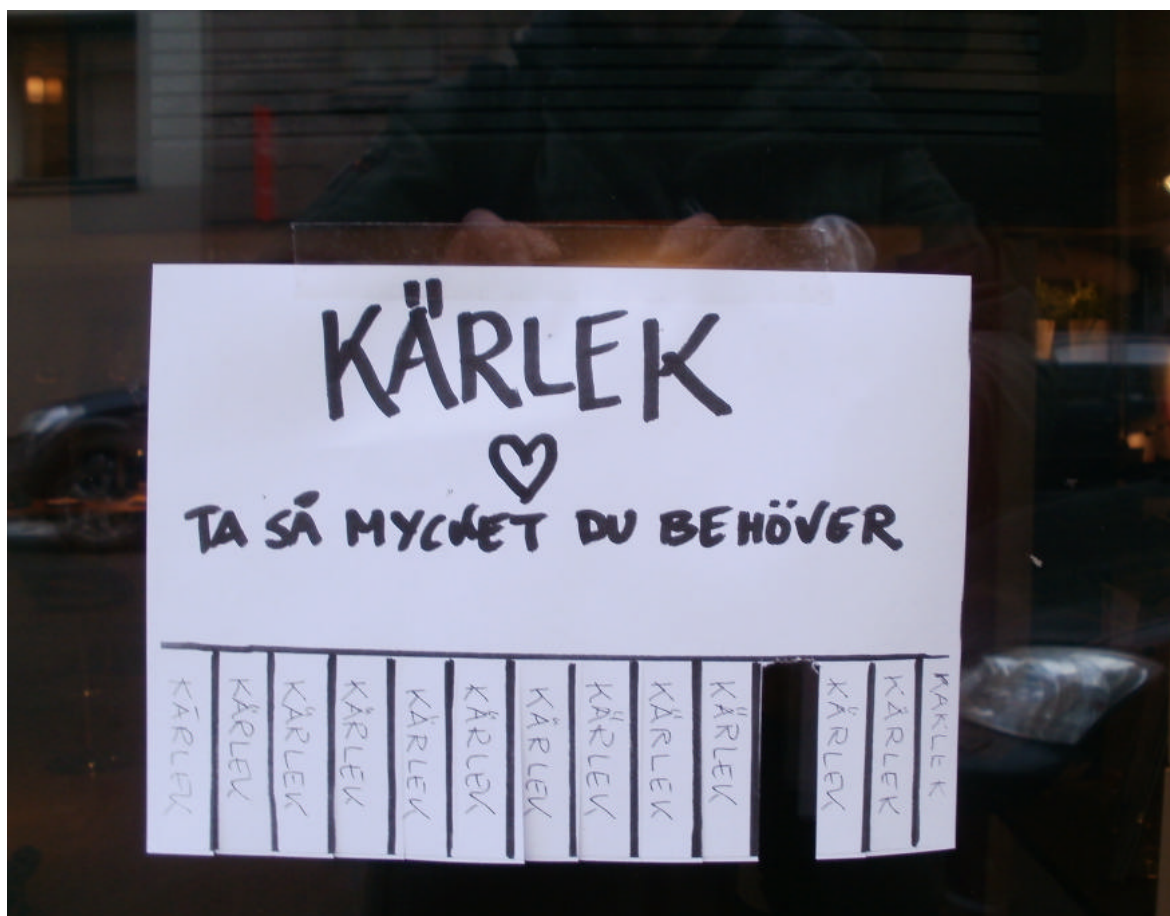 KÄRLEK
TA SÅ MYCKET DU BEHÖVER
KÄRLEK
KÄRLEK
KÄRLEK
KÄRLEK
KÄRLEK
KÄRLEK
KÄRLEK
KÄRLEK
KÄRLEK
KÄRLEK
KÄRLEK
KÄRLEK
KÄRLEK